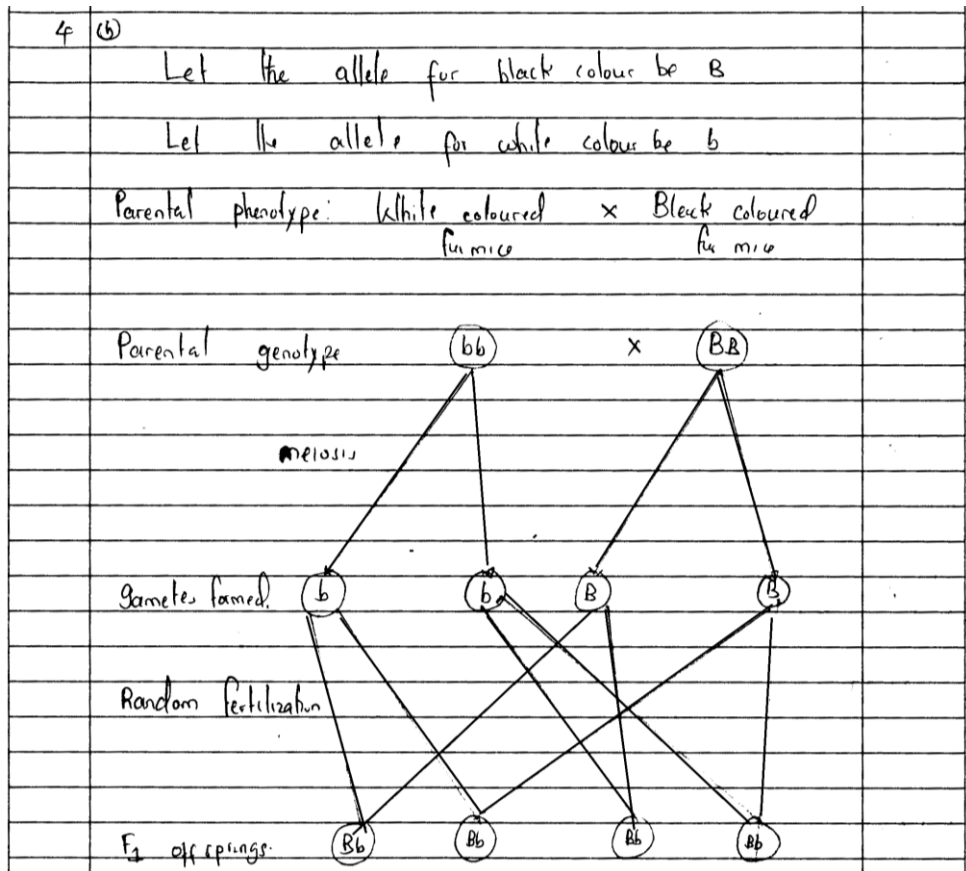 4 (b)
Let the allele for black colour be B
Let the allele for white colour be b
Parental phenotype: White coloured fur mice × Black coloured fur mice
Parental genotype bb × BB
meiosis
gametes formed. b b B B
Random fertilization
F1 offsprings. Bb Bb Bb Bb